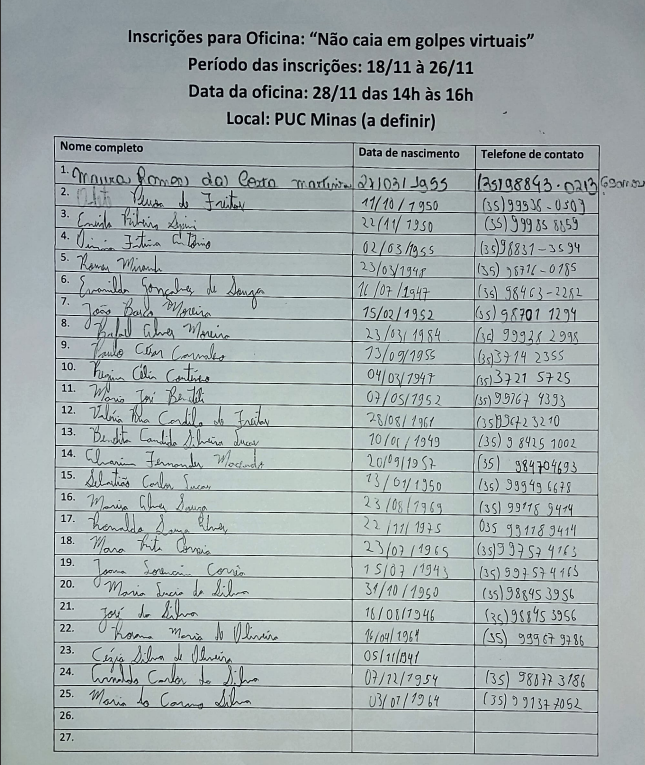 Inscrições para Oficina: “Não caia em golpes virtuais”
Período das inscrições: 18/11 à 26/11
Data da oficina: 28/11 das 14h às 16h
Local: PUC Minas (a definir)
Nome completo Data de nascimento Telefone de contato
1. Maura Ramos da Costa martins 27/03/1955 (35)98843-0213
2. Neusa de Freitas 11/10/1950 (35)99936-0507
3. Ribeiro 22/11/1950 (35) 99985 8859
4. Fátima 02/03/1955 (35)98831-3594
5. Romeu Miranda 23/03/1948 (35) 98716-0185
6. Gonçalves de Souza 16/07/1947 (35) 98463-2282
7. João Moreira 15/02/1952 (35) 98701 1294
8. Rafael Alves Moreira 23/03/1984 (35) 99938 2998
9. Paulo César Carvalho 13/09/1955 (35)3714 2355
10. Regina Célia 04/03/1947 (35)3721 5725
11. Maria José 07/05/1952 (35)99767 4393
12. Valéria de Freitas 28/08/1961 (35)99672 3210
13. Benedita Candida Silveira Lucas 1949 (35) 98425 1002
14. Fernandes Machado 20/09/1957 (35) 984704693
15. Sebastião Carlos Lucas 13/01/1950 (35) 99949 6678
16. Alves Souza 23/08/1969 (35) 99118 9414
17. Ronaldo Souza Alves 22/11/1975 035 99118 9414
18. Mara Rita Correia 23/07/1965 (35)99757 4163
19. Joana Correia 15/07/1943 (35) 99757 4163
20. Maria Lucia da Silva 31/10/1950 (35)98845 3956
21. José da Silva 16/08/1946 (35)98845 3956
22. Rosana Maria de Oliveira 16/04/1961 (35) 99967 9786
23. Silva de Oliveira 05/11/1941
24. Carlos da Silva 07/12/1954 (35) 98873 3186
25. Maria do Carmo Silva 03/07/1964 (35) 99137 7052
26.
27.